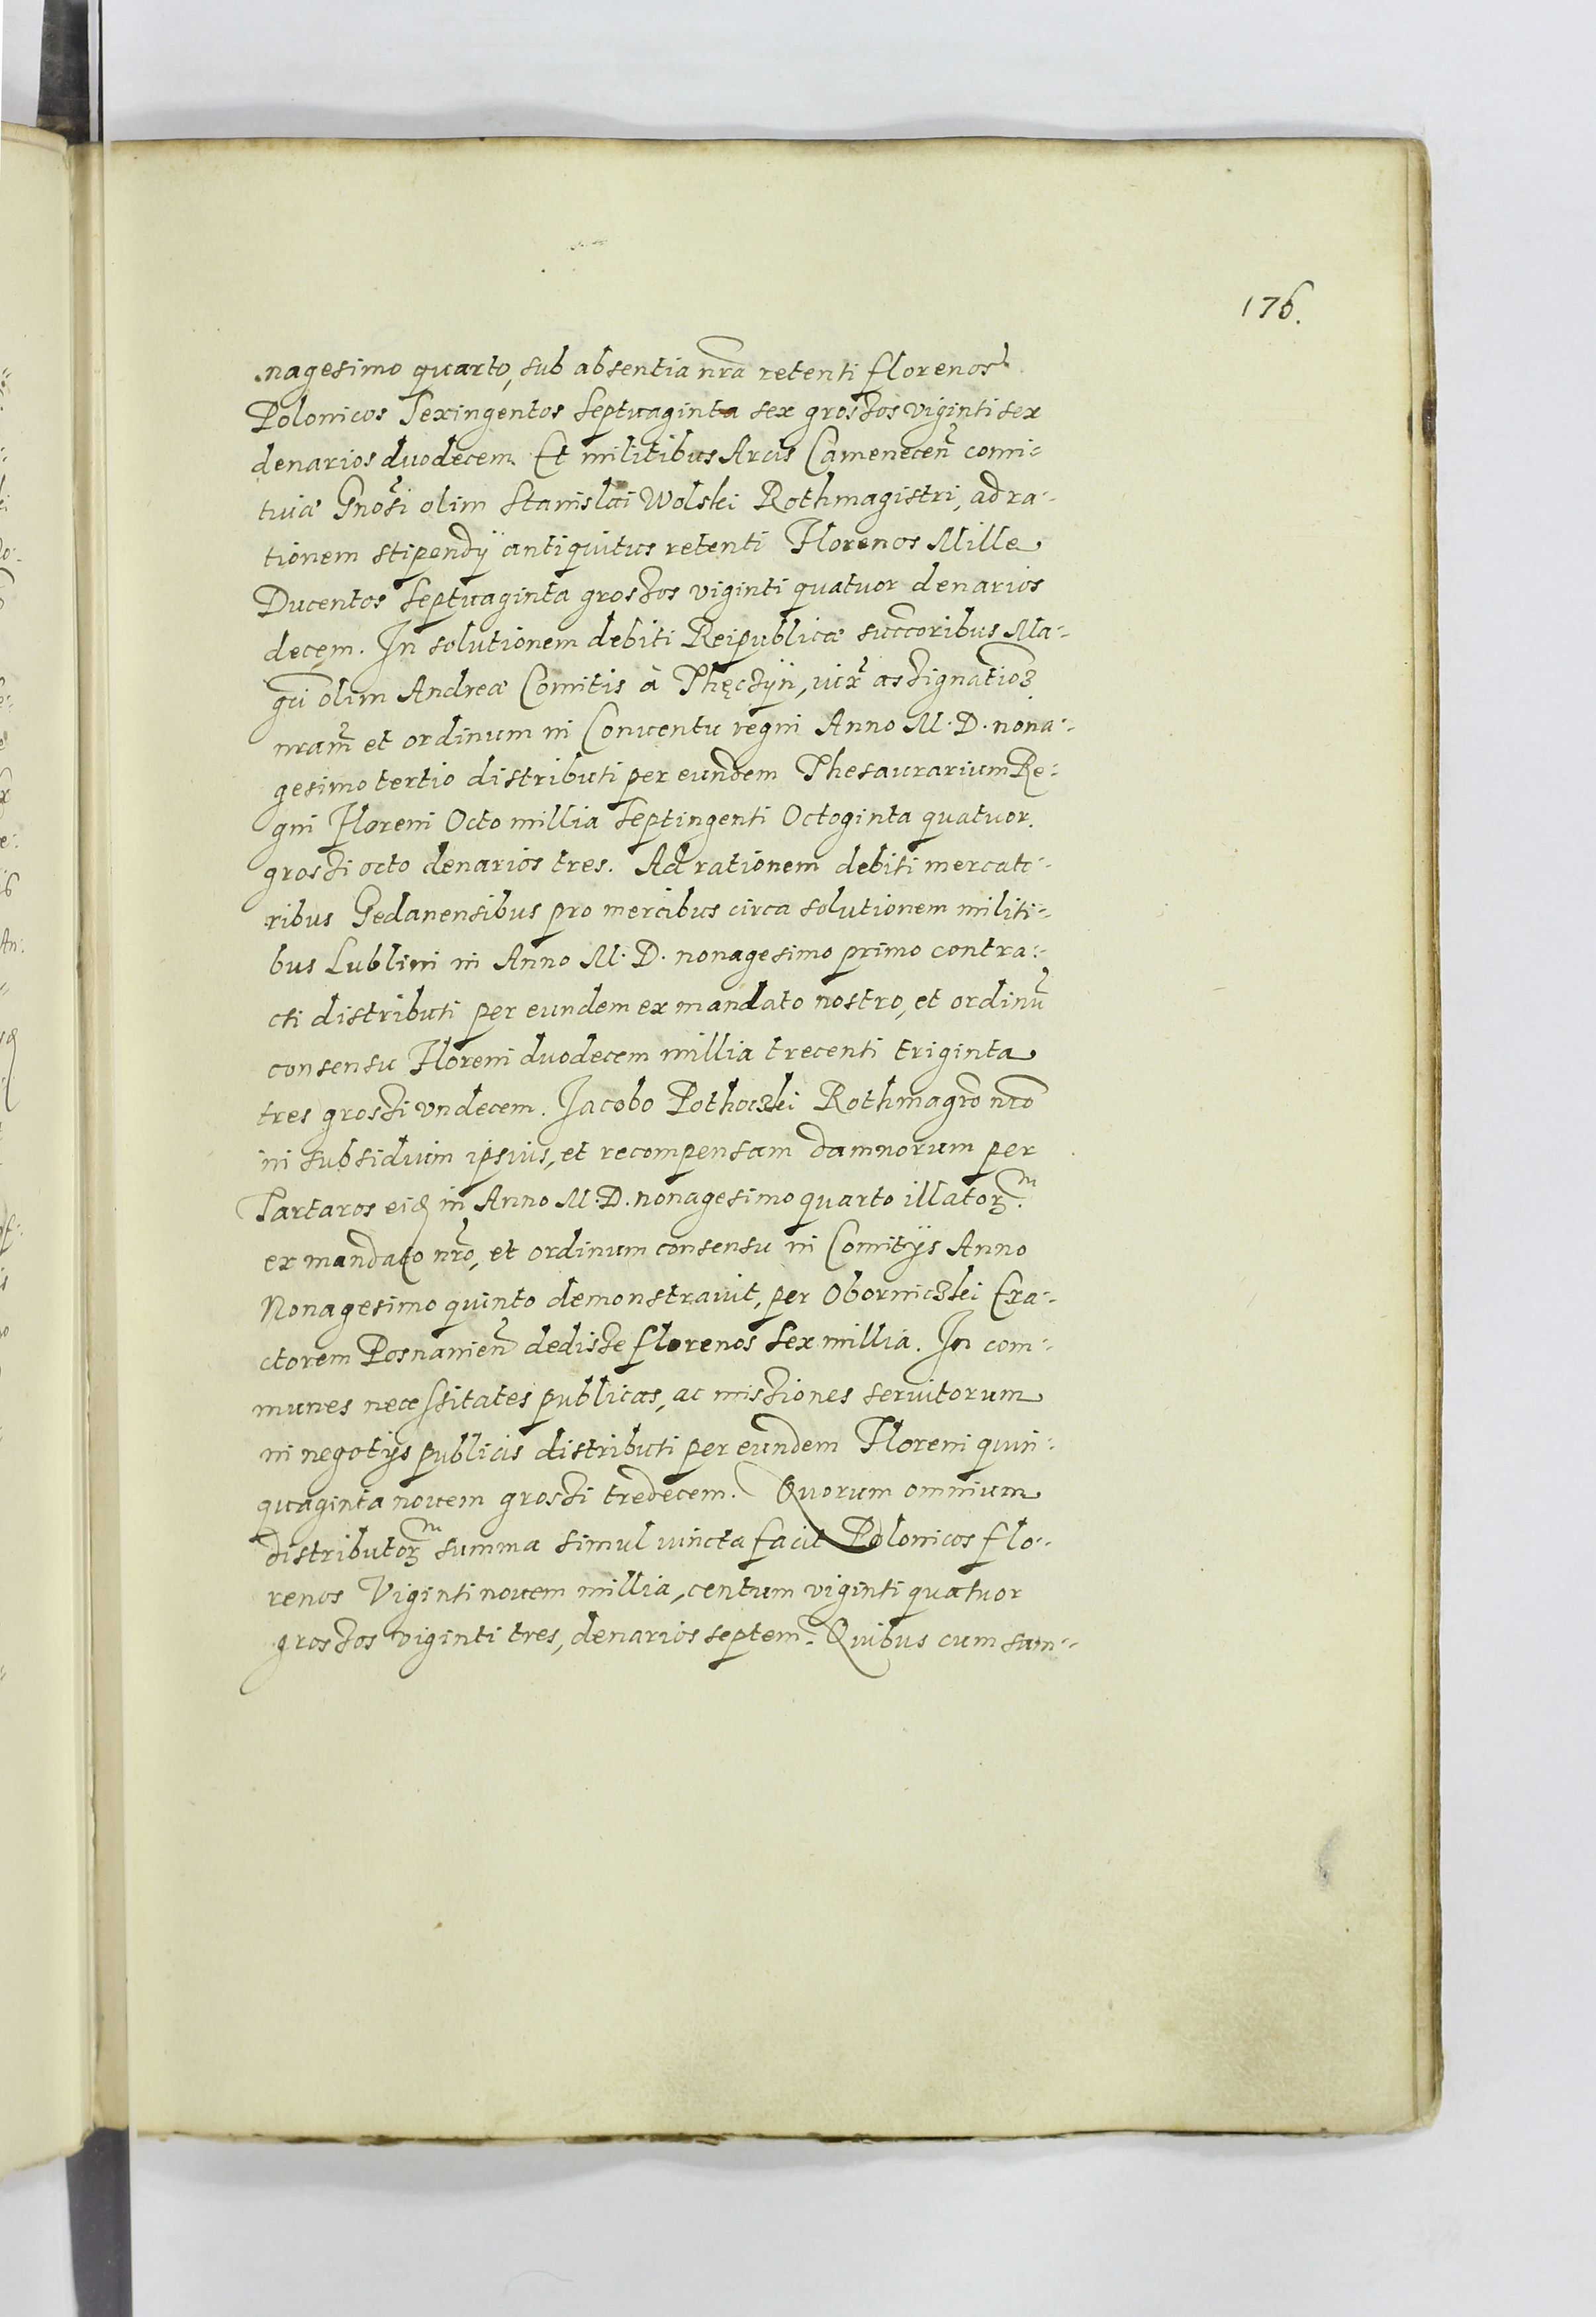 176.
nagesimo quarto, sub absentia nrã retenti florenos
Polonicos Sexingentos septuaginta sex grossos viginti sex
denarios duodecem. Et militibus Arcis Camenecen̄ comi-
tiuæ Gnosi olim Stanislai Wolski Rothmagistri, ad ra-
tionem stipendÿ antiquitus retenti Florenos Mille
Ducentos septuaginta grossos viginti quatuor denarios
decem. In solutionem debiti Reipublicæ succoribus Ma-
gci olim Andreæ Comitis à Thęczÿn, iux̃ assignatioʒ
nram̃ et ordinum in Conuentu regni Anno M. D. nona-
gesimo tertio distributi per eundem Thesaurarium Re-
gni Floreni Octo millia septingenti Octoginta quatuor
grossi octo denarios tres. Ad rationem debiti mercato-
ribus Gedanensibus pro mercibus circa solutionem militi-
bus Lublini in Anno M. D. nonagesimo primo contra-
cti distributi per eundem ex mandato nostro, et ordinũ
consensu Floreni duodecem millia trecenti triginta
tres grossi vndecem. Jacobo Pothoczki Rothmagrõ nrõ
in subsidium ipsius, et recompensam damnorum per
Tartaros eid in Anno M. D. nonagesimo quarto illatorꝝ
ex mandato nrõ, et ordinum consensu in Comitÿs Anno
Nonagesimo quinto demonstrauit, per Oborniczki Exa-
ctorem Posnanien̄ dedisse florenos sex millia. In com-
munes necessitates publicas, ac missiones seruitorum
in negotÿs publicis distributi per eundem Floreni quin-
quaginta nouem grossi tredecem. Quorum omnium
distributorꝝ summa simul iuncta facit Polonicos flo-
renos Viginti nouem millia, centum viginti quatuor
grossos viginti tres, denarios septem. Quibus cum sum-